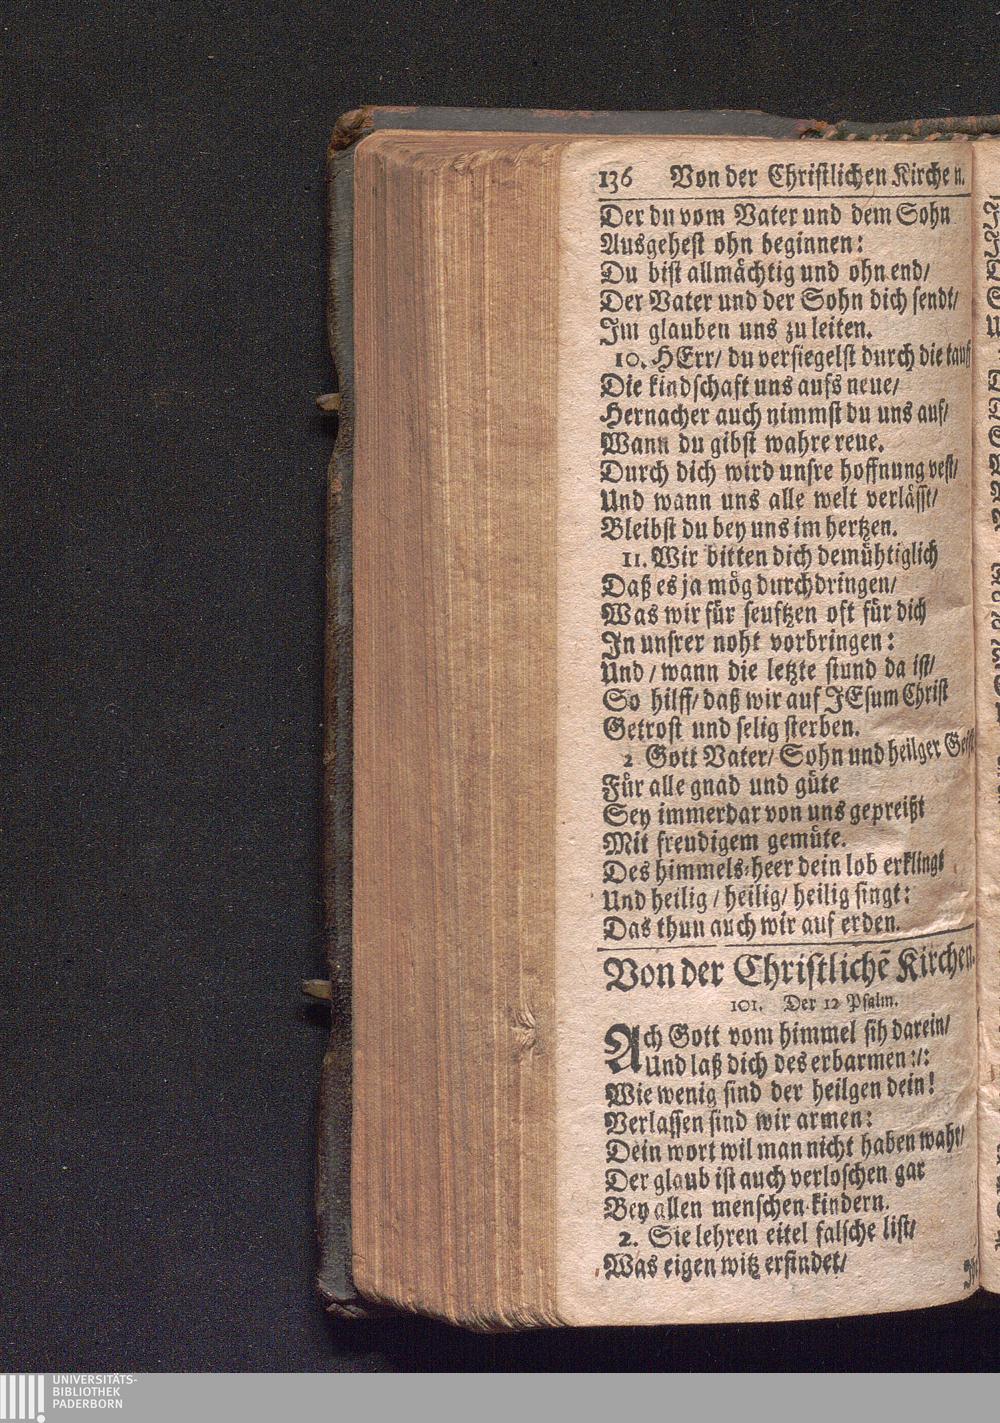 136 Von der Christlichen Kirchen.
Der du vom Vater und dem Sohn
Ausgehest ohn beginnen:
Du bist allmächtig und ohn end/
Der Vater und der Sohn dich sendt/
Im glauben uns zu leiten.
10. HErr/ du versiegelst durch die tauf
Die kindschaft uns aufs neue/
Hernacher auch nimmst du uns auf/
Wann du gibst wahre reue.
Durch dich wird unsre hoffnung vest/
Und wann uns alle welt verlässt/
Bleibst du bey uns im hertzen.
11. Wir bitten dich demühtiglich
Daß es ja mög durchdringen/
Was wir für seuftzen oft für dich
In unsrer noht vorbringen:
Und/ wann die letzte stund da ist/
So hilff/ daß wir auf JEsum Christ
Getrost und selig sterben.
2 Gott Vater/ Sohn und heilger Geist
Für alle gnad und güte
Sey immerdar von uns gepreißt
Mit freudigem gemüte.
Des himmels-heer dein lob erklingt
Und heilig/ heilig/ heilig singt:
Das thun auch wir auf erden.
Von der Christlichē Kirchen.
101. Der 12 Psalm.
Ach Gott vom himmel sih darein/
Und laß dich des erbarmen:/:
Wie wenig sind der heilgen dein!
Verlassen sind wir armen:
Dein wort wil man nicht haben wahr/
Der glaub ist auch verloschen gar
Bey allen menschen-kindern.
2. Sie lehren eitel falsche list/
Was eigen witz erfindet/
UNIVERSITÄTS-
BIBLIOTHEK
PADERBORN